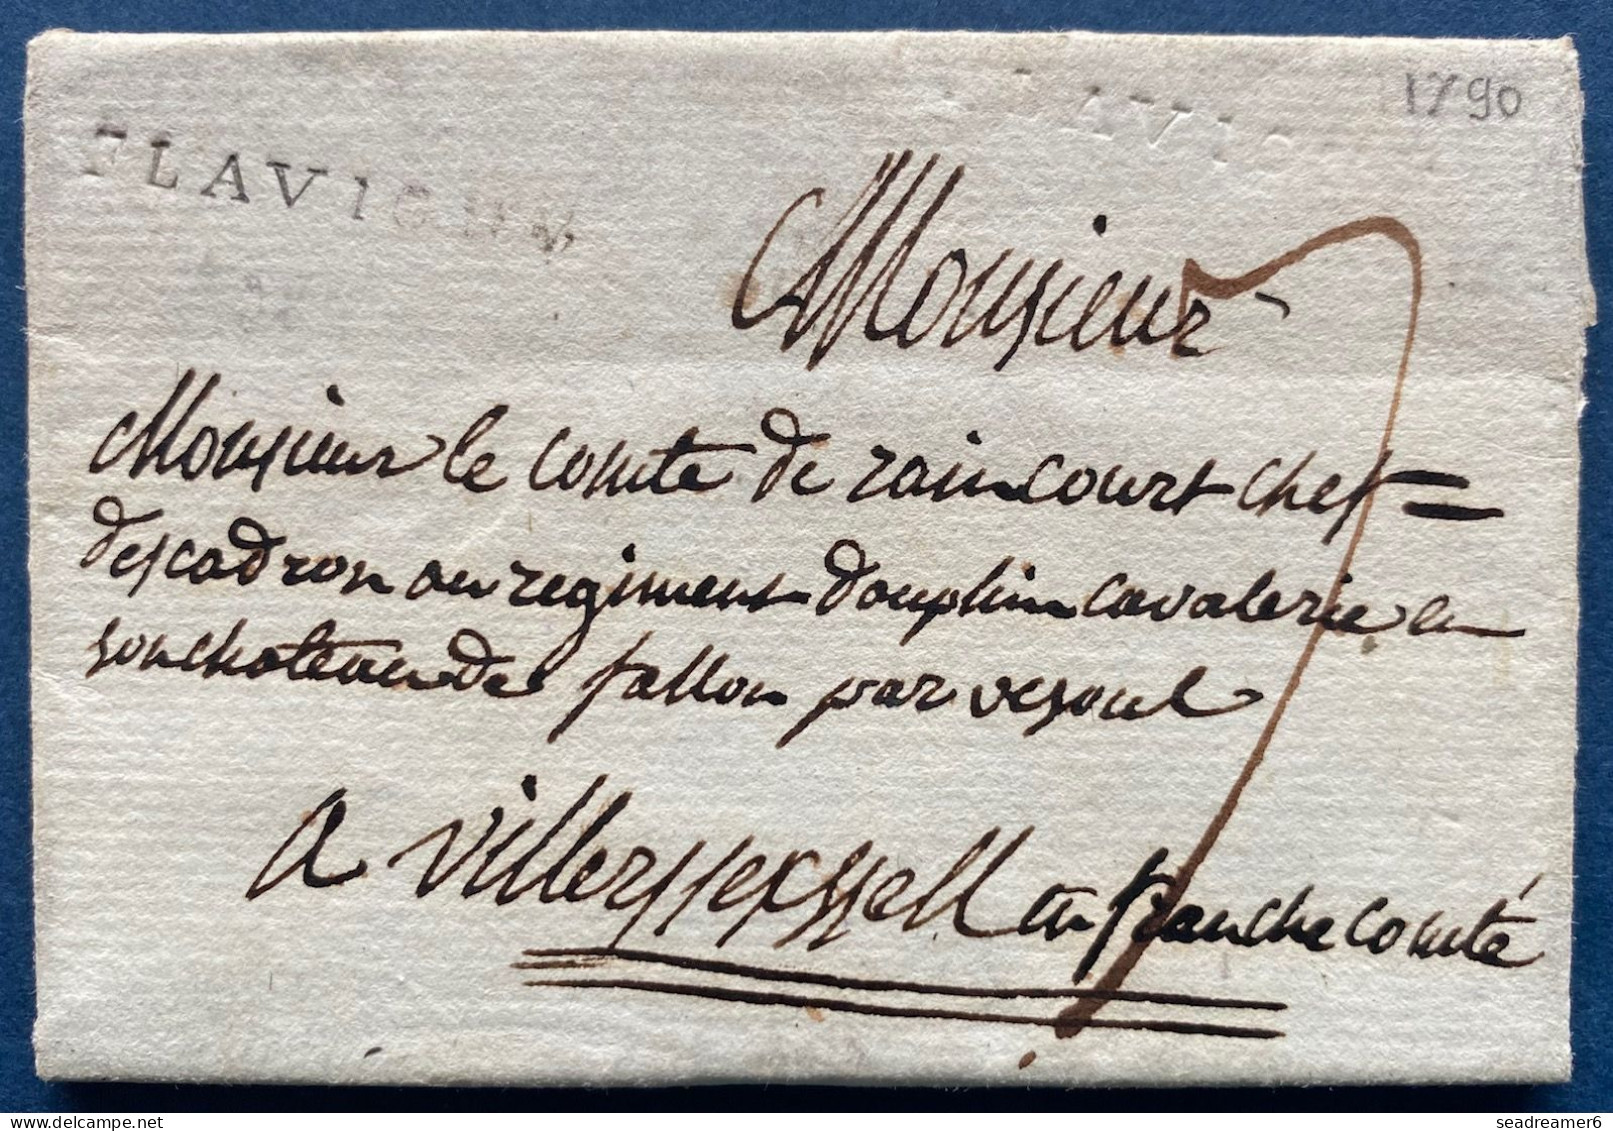 1790
FLAVIGNY
AVIG
Monsieur
7
Monsieur le comte de raincourt chef =
descadron au regiment dauphin cavalerie en
son chateau de fallon par vesoul
a villersexssell en franche comté
seadreamer6